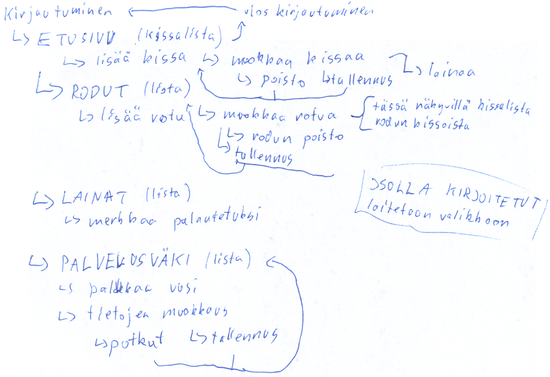 Kirjautuminen ulos kirjautuminen
ETUSIVU (kissalista)
lisää kissa muokkaa kissaa
poisto tallennus lainaa
RODUT (lista)
lisää rotu muokkaa rotua tässä näkyvillä kissalista
rodun kissoista
rodun poisto
tallennus
LAINAT (lista)
merkkaa palautetuksi
ISOLLA KIRJOITETUT
laitetaan valikkoon
PALVELUSVÄKI (lista)
palkkaa uusi
tietojen muokkaus
potkut tallennus